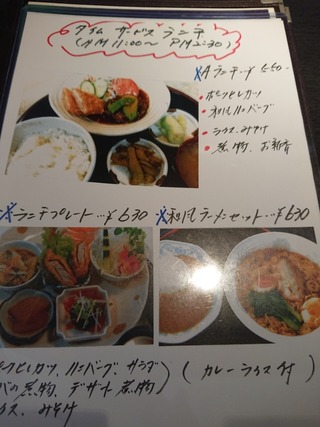 タイム サービス ランチ
(AM 11:00〜 PM 2:30)
Aランチ‥¥550-
• 和風ハンバーグ
• ライス、みそ汁
• 煮物、お新香
ランチプレート‥¥630
和風ラーメンセット‥¥630
ヒレカツ、ハンバーグ、サラダ
の煮物、デザート 煮物)
イス、みそ汁
(カレーライス付)